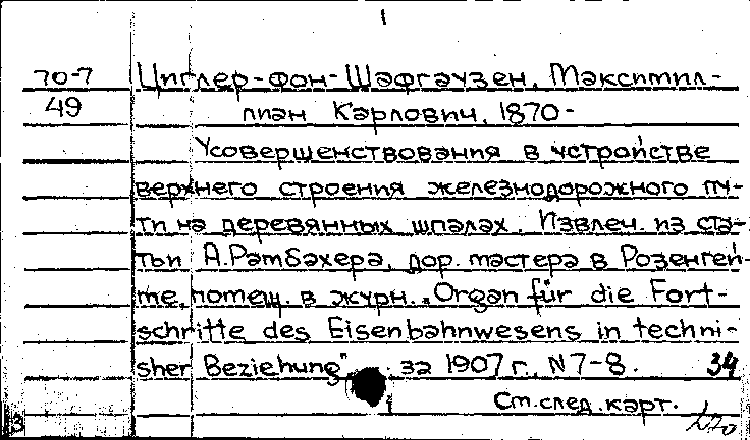 1
70-7 Циглер-фон-Шафгаузен, Максимил-
49 лиан Карлович, 1870-
Усовершенствования в устройстве
верхнего строения железнодорожного пу-
ти на деревянных шпалах. Извлеч. из ста-
тьи А.Рамбахера, дор. мастера в Розенгей-
ме, помещ. в журн. „Organ für die Fort-
schritte des Eisenbahnwesens in techni-
sher Beziehung" за 1907 г., N 7-8. 34
См.след.карт.